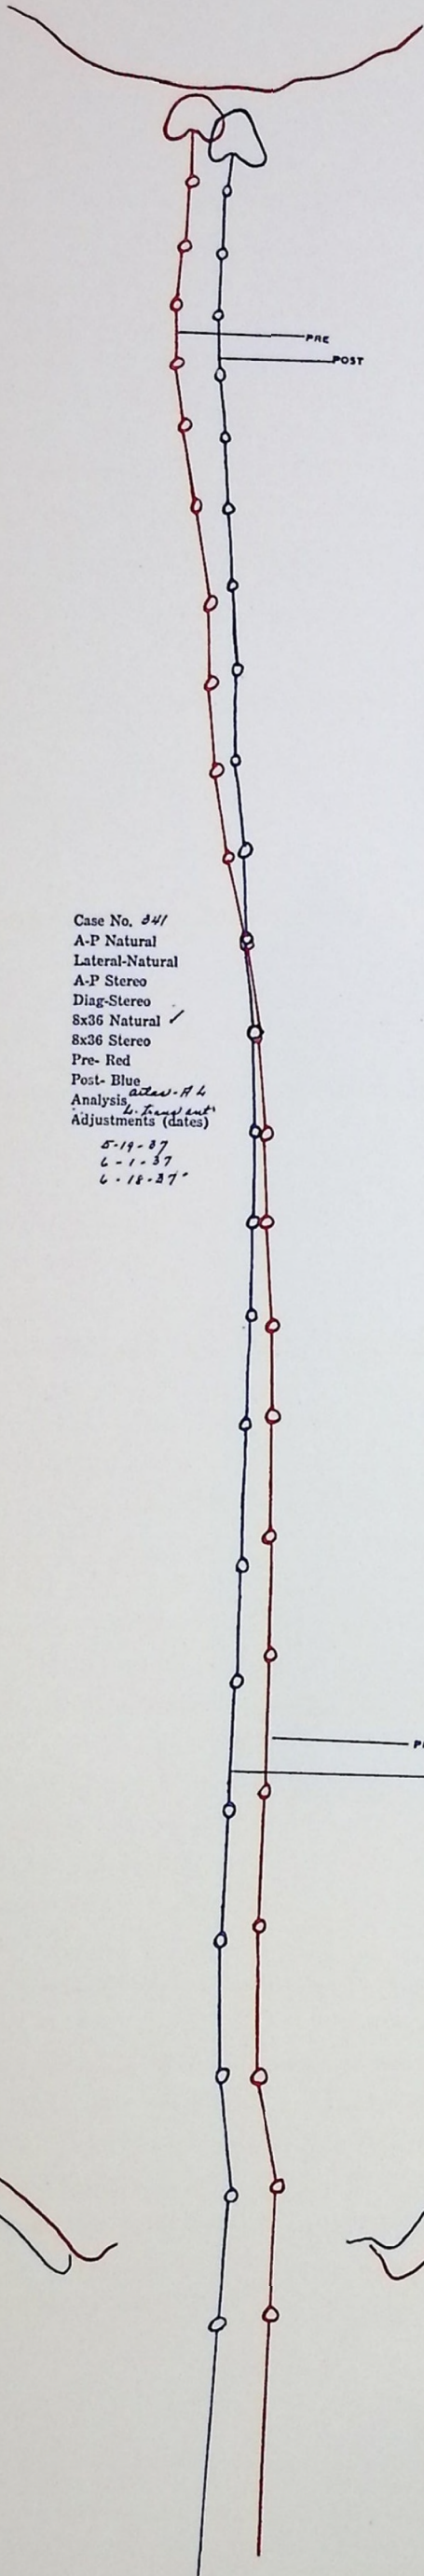 PRE
POST
Case No. 341
A-P Natural
Lateral-Natural
A-P Stereo
Diag-Stereo
8x36 Natural ✓
8x36 Stereo
Pre- Red
Post- Blue
Analysis atlas - A L
L. Trans ant.
Adjustments (dates)
5-19-37
6-1-37
6-18-37